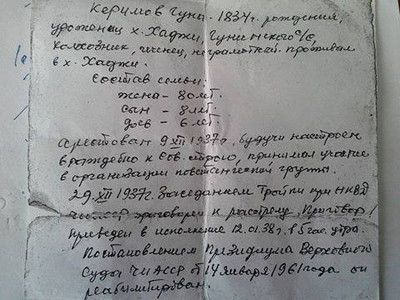 Керимов Гуны - 1834 г. рождения,
уроженец х. Хаджи, Гунинского с/с,
колхозник, чеченец, неграмотный. проживал
в х. Хаджи.
Состав семьи:
жена - 80 лет.
сын - 8 лет
дочь - 6 лет
арестован 9 XII 1937 г. будучи настроен
враждебно к Сов. строю, принимал участие
в организации повстанческой группы.
29 XII 1937 г. Заседанием Тройки при НКВД
ЧИАССР приговорен к расстрелу. Приговор
приведен в исполнение 12.01.38 г. в 5 час. утра.
Постановлением Президиума Верховного
Суда ЧИАССР от 14 января 1961 года он
реабилитирован.